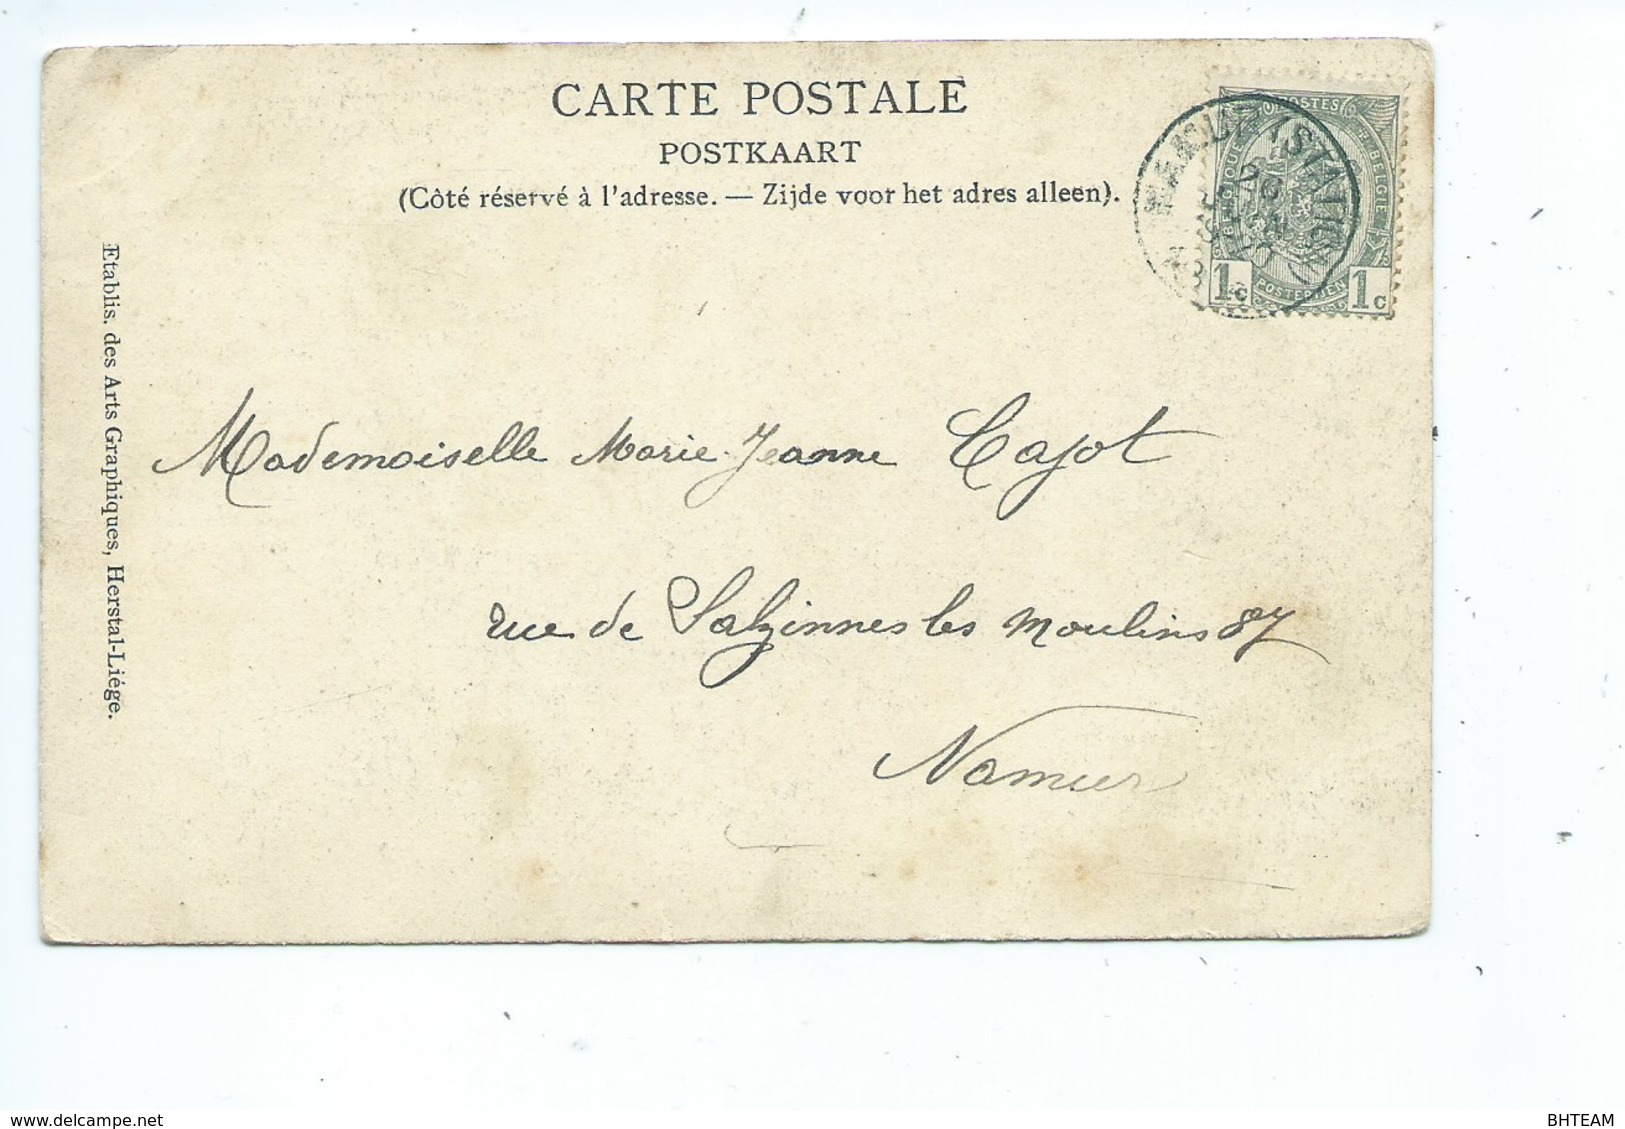 CARTE POSTALE
POSTKAART
(Côté réservé à l'adresse. — Zijde voor het adres alleen).
POSTES
BELGIQUE
BELGIE
POSTERIJEN
1c 1c
(STATION)
Etablis. des Arts Graphiques, Herstal-Liége.
Mademoiselle Marie-Jeanne Cajot
rue de Salzinnes les Moulins 87
Namur
www.delcampe.net
BHTEAM